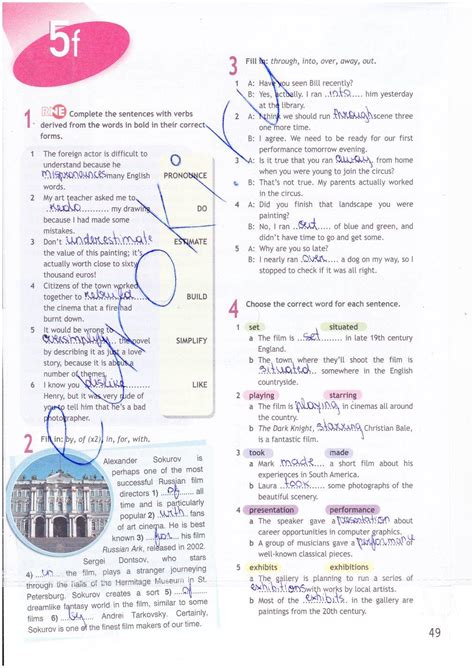 5f
1 RNE Complete the sentences with verbs
derived from the words in bold in their correct
forms.
1 The foreign actor is difficult to
understand because he
mispronounces many English
words.
PRONOUNCE
2 My art teacher asked me to
redo my drawing
because I had made some
mistakes.
DO
3 Don't underestimate
the value of this painting; it's
actually worth close to sixty
thousand euros!
ESTIMATE
4 Citizens of the town worked
together to rebuild
the cinema that a fire had
burnt down.
BUILD
5 It would be wrong to
oversimplify the novel
by describing it as just a love
story, because it is about a
number of themes.
SIMPLIFY
6 I know you dislike
Henry, but it was very rude of
you to tell him that he's a bad
photographer.
LIKE
2 Fill in: by, of (x2), in, for, with.
Alexander Sokurov is
perhaps one of the most
successful Russian film
directors 1) of all
time and is particularly
popular 2) with fans
of art cinema. He is best
known 3) for his film
Russian Ark, released in 2002.
Sergei Dontsov, who stars
4) in the film, plays a stranger journeying
through the halls of the Hermitage Museum in St.
Petersburg. Sokurov creates a sort 5) of
dreamlike fantasy world in the film, similar to some
films 6) by Andrei Tarkovsky. Certainly,
Sokurov is one of the finest film makers of our time.
3 Fill in: through, into, over, away, out.
1 A: Have you seen Bill recently?
B: Yes, actually. I ran into him yesterday
at the library.
2 A: I think we should run through scene three
one more time.
B: I agree. We need to be ready for our first
performance tomorrow evening.
3 A: Is it true that you ran away from home
when you were young to join the circus?
B: That's not true. My parents actually worked
in the circus.
4 A: Did you finish that landscape you were
painting?
B: No, I ran out of blue and green, and
didn't have time to go and get some.
5 A: Why are you so late?
B: I nearly ran over a dog on my way, so I
stopped to check if it was all right.
4 Choose the correct word for each sentence.
1 set situated
a The film is set in late 19th century
England.
b The town where they'll shoot the film is
situated somewhere in the English
countryside.
2 playing starring
a The film is playing in cinemas all around
the country.
b The Dark Knight, starring Christian Bale,
is a fantastic film.
3 took made
a Mark made a short film about his
experiences in South America.
b Laura took some photographs of the
beautiful scenery.
4 presentation performance
a The speaker gave a presentation about
career opportunities in computer graphics.
b A group of musicians gave a performance of
well-known classical pieces.
5 exhibits exhibitions
a The gallery is planning to run a series of
exhibitions with works by local artists.
b Most of the exhibits in the gallery are
paintings from the 20th century.
49